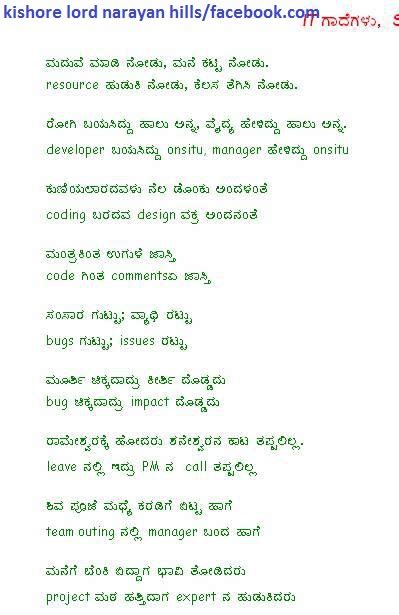 kishore lord narayan hills/facebook.com
IT ಗಾದೆಗಳು,
ಮದುವೆ ಮಾಡಿ ನೋಡು, ಮನೆ ಕಟ್ಟಿ ನೋಡು.
resource ಹುಡುಕಿ ನೋಡು, ಕೆಲಸ ತೆಗಿಸಿ ನೋಡು.
ರೋಗಿ ಬಯಸಿದ್ದು ಹಾಲು ಅನ್ನ, ವೈದ್ಯ ಹೇಳಿದ್ದು ಹಾಲು ಅನ್ನ.
developer ಬಯಸಿದ್ದು onsitu, manager ಹೇಳಿದ್ದು onsitu
ಕುಣಿಯಲಾರದವಳು ನೆಲ ಡೊಂಕು ಅಂದಳಂತೆ
coding ಬರದವ design ವಕ್ರ ಅಂದನಂತೆ
ಮಂತ್ರಕಿಂತ ಉಗುಳೆ ಜಾಸ್ತಿ
code ಗಿಂತ commentsಏ ಜಾಸ್ತಿ
ಸಂಸಾರ ಗುಟ್ಟು; ವ್ಯಾಧಿ ರಟ್ಟು
bugs ಗುಟ್ಟು; issues ರಟ್ಟು
ಮೂರ್ತಿ ಚಿಕ್ಕದಾದ್ರು ಕೀರ್ತಿ ದೊಡ್ಡದು
bug ಚಿಕ್ಕದಾದ್ರು impact ದೊಡ್ಡದು
ರಾಮೇಶ್ವರಕ್ಕೆ ಹೋದರು ಶನೇಶ್ವರನ ಕಾಟ ತಪ್ಪಲಿಲ್ಲ.
leave ನಲ್ಲಿ ಇದ್ರು PM ನ call ತಪ್ಪಲಿಲ್ಲ
ಶಿವ ಪೂಜೆ ಮಧ್ಯೆ ಕರಡಿಗೆ ಬಿಟ್ಟ ಹಾಗೆ
team outing ನಲ್ಲಿ manager ಬಂದ ಹಾಗೆ
ಮನೆಗೆ ಬೆಂಕಿ ಬಿದ್ದಾಗ ಭಾವಿ ತೋಡಿದರು
project ಮಠ ಹತ್ತಿದಾಗ expert ನ ಹುಡುಕಿದರು